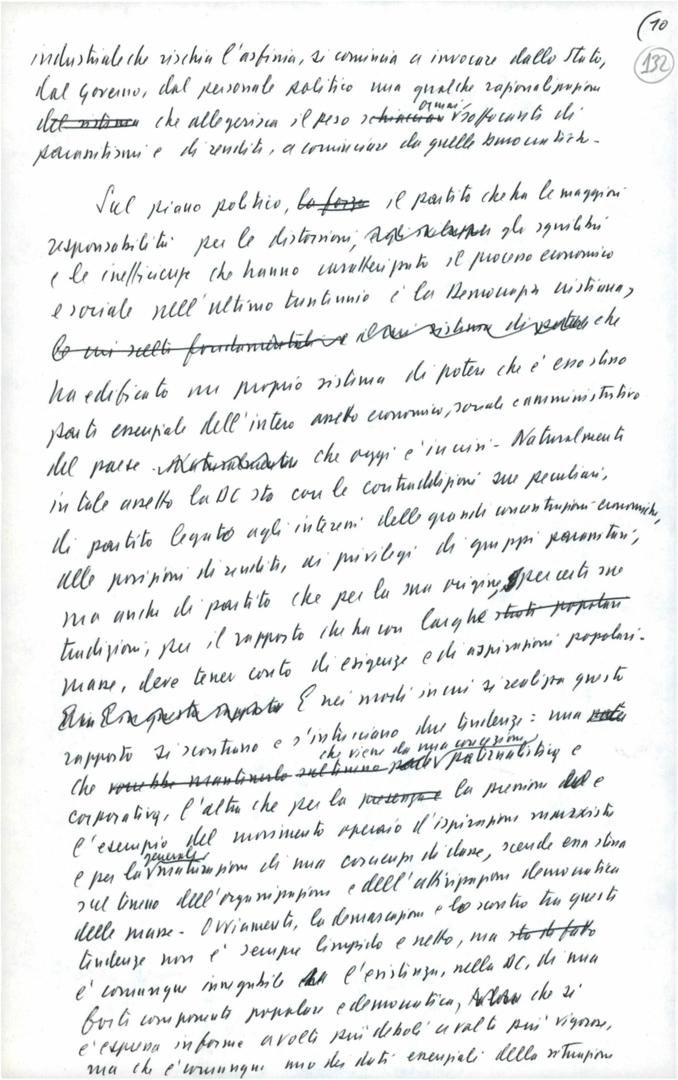 (10
132
industriale che rischia l'asfissia, si comincia a invocare dallo Stato,
dal Governo, dal personale politico una qualche razionalizzazione
del sistema che alleggerisca il peso ormai soffocante di
parassitismi e di rendite, a cominciare da quelle burocratiche.
Sul piano politico, la forza il partito che ha le maggiori
responsabilità per le distorsioni, gli squilibri
e le inefficienze che hanno caratterizzato il processo economico
e sociale nell'ultimo trentennio è la Democrazia cristiana,
le cui scelte fondamentali e il cui sistema di potere che
ha edificato un proprio sistema di potere che è esso stesso
parte essenziale dell'intero assetto economico, sociale e amministrativo
del paese Naturalmente che oggi è in crisi. Naturalmente
in tale assetto la DC sta con le contraddizioni sue peculiari,
di partito legato agli interessi delle grandi concentrazioni economiche,
alle posizioni di rendita, ai privilegi di gruppi parassitari,
ma anche di partito che per la sua origine, per certe sue
tradizioni, per il rapporto che ha con larghe strati popolari
masse, deve tener conto di esigenze e di aspirazioni popolari.
E nei modi in cui si realizza questo
rapporto si scontrano e s'intrecciano due tendenze: una
che viene da una concezione
che paternalistica e
corporativa, l'altra che per la presenza e la pressione e
l'esempio del movimento operaio d'ispirazione marxista
generale
e per la maturazione di una coscienza di classe, scende essa stessa
sul terreno dell'organizzazione e dell'attivizzazione democratica
delle masse. Ovviamente, la demarcazione e lo scontro tra queste
tendenze non è sempre limpido e netto, ma sta di fatto
è comunque innegabile l'esistenza, nella DC, di una
forte componente popolare e democratica, che si
è espressa in forme a volte più deboli a volte più vigorose,
ma che è comunque uno dei dati essenziali della situazione